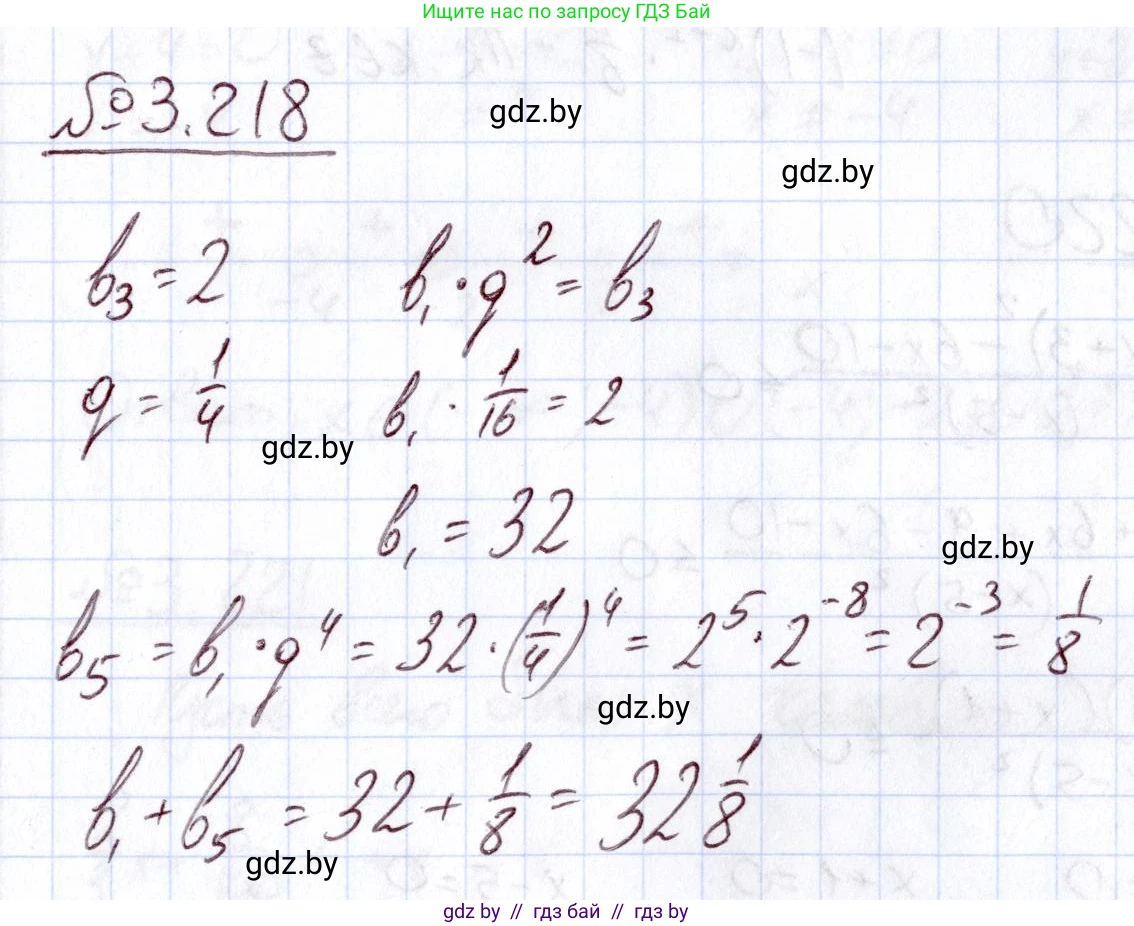 Ищите нас по запросу ГДЗ Бай
№ 3.218
gdz.by
gdz.by
b₃ = 2    b₁ · q² = b₃
q = 1/4    b₁ · 1/16 = 2
gdz.by
b₁ = 32
gdz.by
b₅ = b₁ · q⁴ = 32 · (1/4)⁴ = 2⁵ · 2⁻⁸ = 2⁻³ = 1/8
gdz.by
b₁ + b₅ = 32 + 1/8 = 32 1/8
gdz.by
gdz by // гдз бай // гдз by